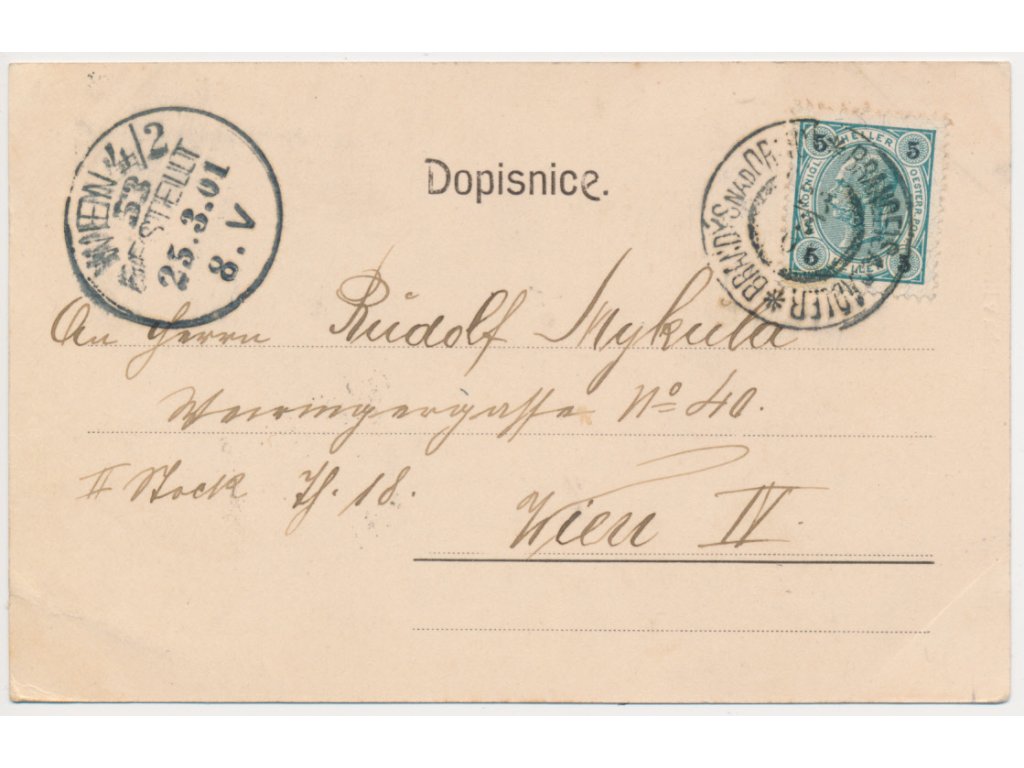 WIEN 4/2
53
BESTELLT
25.3.01
8.V
Dopisnice.
BRANDÝS NAD OR.
ADLER
5 HELLER 5
5 5
An Herrn Rudolf Mykula
Weiringergasse No 40.
II Stock Th. 18.
Wien IV.